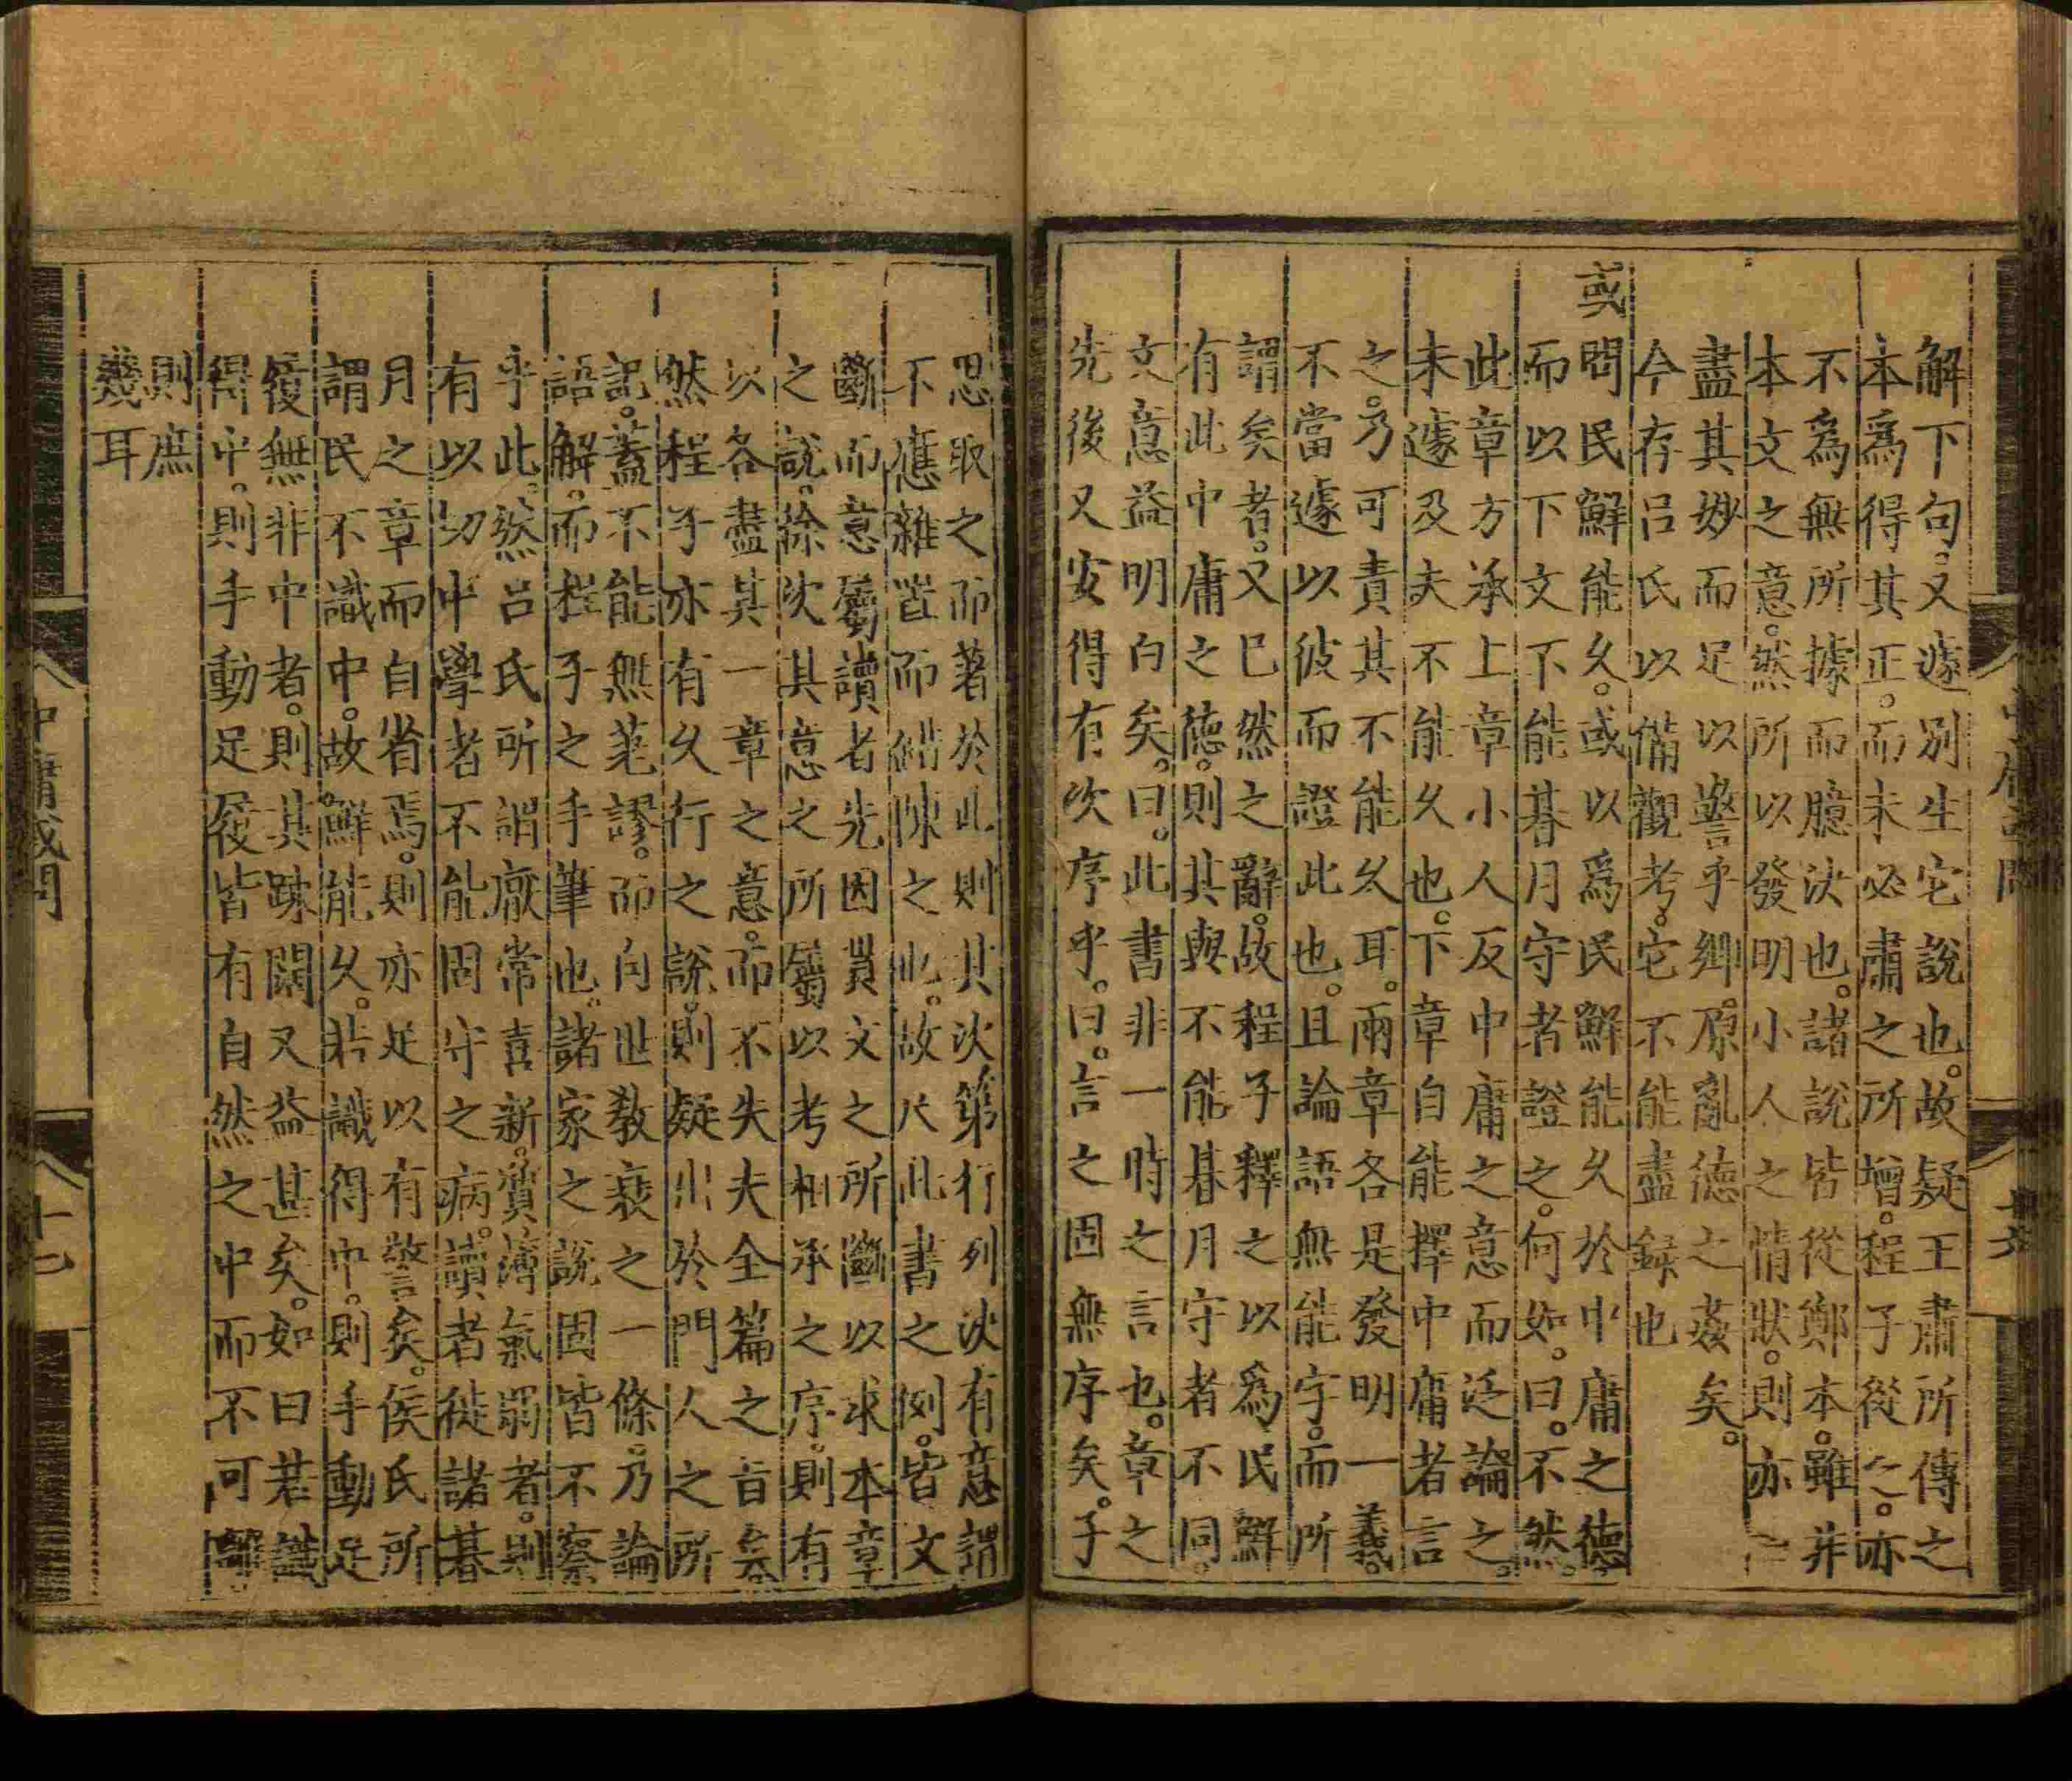 解下句。又遽別生它說也。故疑王肅所傳之
本爲得其正。而未必肅之所增。程子從之。亦
不爲無所據而臆決也。諸說皆從鄭本。雖非
本文之意。然所以發明小人之情狀。則亦
盡其妙而足以警乎鄉原亂德之姦矣。
今存呂氏以備觀考。它不能盡錄也
或問民鮮能久。或以爲民鮮能久於中庸之德。
而以下文不能朞月守者證之。何如。曰。不然。
此章方承上章小人反中庸之意而泛論之。
未遽及夫不能久也。下章自能擇中庸者言
之。乃可責其不能久耳。兩章各是發明一義。
不當遽以彼而證此也。且論語無能字。而所
謂矣者。又已然之辭。故程子釋之以爲民鮮
有此中庸之德。則其與不能朞月守者不同。
文意益明白矣。曰。此書非一時之言也。章之
先後又安得有次序乎。曰。言之固無序矣。子
思取之而著於此則其次第行列決有意謂
不應雜置而錯陳之也。故凡此書之例。皆文
斷而意屬讀者先因其文之所斷以求本章
之說。徐次其意之所屬以考相承之序。則有
以各盡其一章之意。而不失夫全篇之旨矣
然程子亦有久行之說。則疑出於門人之所
記。蓋不能無差謬。而自世教衰之一條。乃論
語解。而程子之手筆也。諸家之說固皆不察
乎此。然呂氏所謂厭常喜新。質薄氣弱者。則
有以切中學者不能固守之病。讀者徒諸朞
月之章而自省焉。則亦足以有警矣。侯氏所
謂民不識中。故鮮能久。若識得中。則手動足
履無非中者。則其疎闊又益甚矣。如曰若識
得中。則手動足履皆有自然之中而不可離
則庶
幾耳
中庸或問
十六
中庸或問
十七